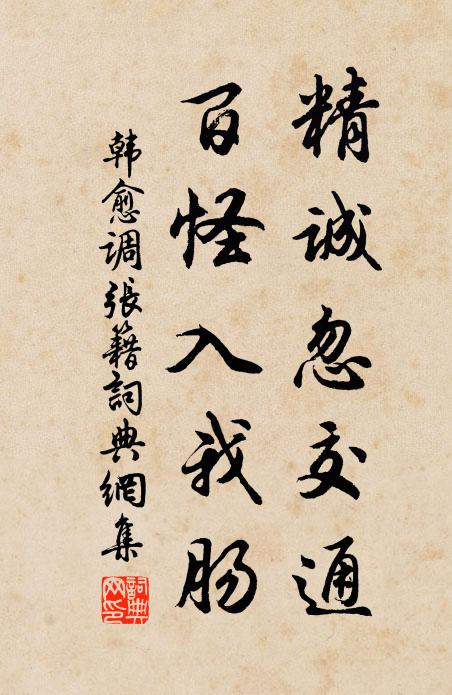 精誠忽交通
百怪入我肠
韩愈调張籍詞典網集
詞典
网印